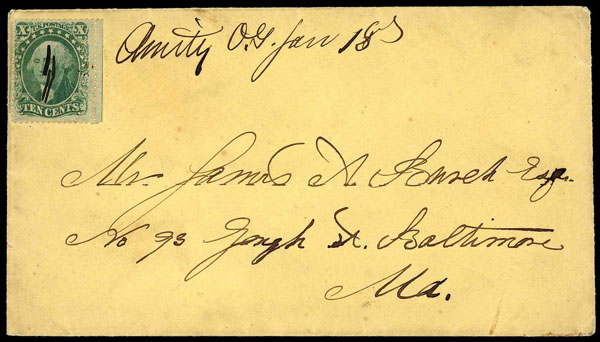 X X
TEN CENTS.
Amity O.G. Jan 18
Mr. James A Burch Esqr.
No 93 Gough St. Baltimore
Md.